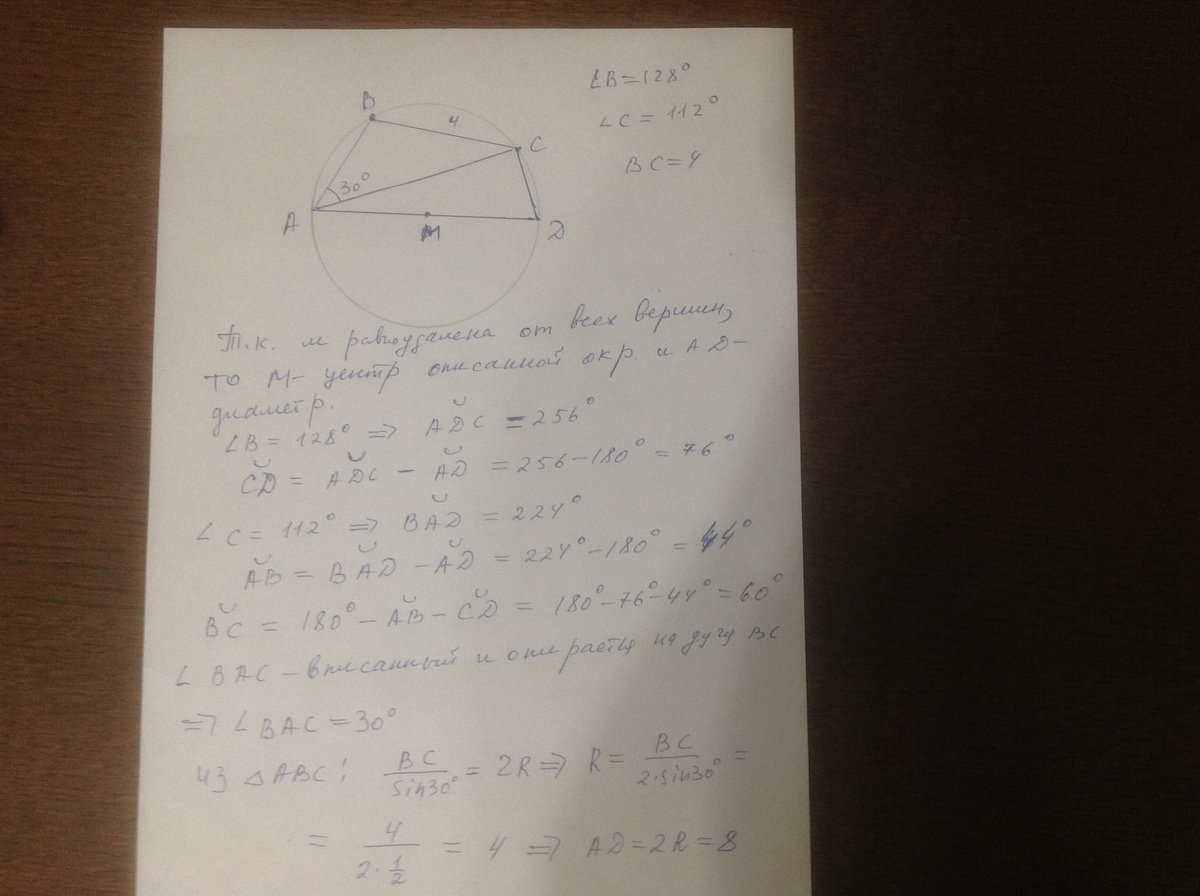 ∠B=128°
∠C=112°
BC=4
B
4
C
30°
A
M
D
Т.к. М равноудалена от всех вершин,
то М- центр описанной окр и AD-
диаметр.
∠B = 128° => A͝DC = 256°
C͝D = A͝DC - A͝D = 256-180° = 76°
∠C = 112° => B͝AD = 224°
A͝B = B͝AD - A͝D = 224°-180° = 44°
B͝C = 180° - A͝B - C͝D = 180°-76-44° = 60°
∠BAC - вписанный и опирается на дугу BC
=> ∠BAC = 30°
Из △ABC: BC/sin30° = 2R => R = BC/2·sin30° =
= 4/2·1/2 = 4 => AD=2R=8